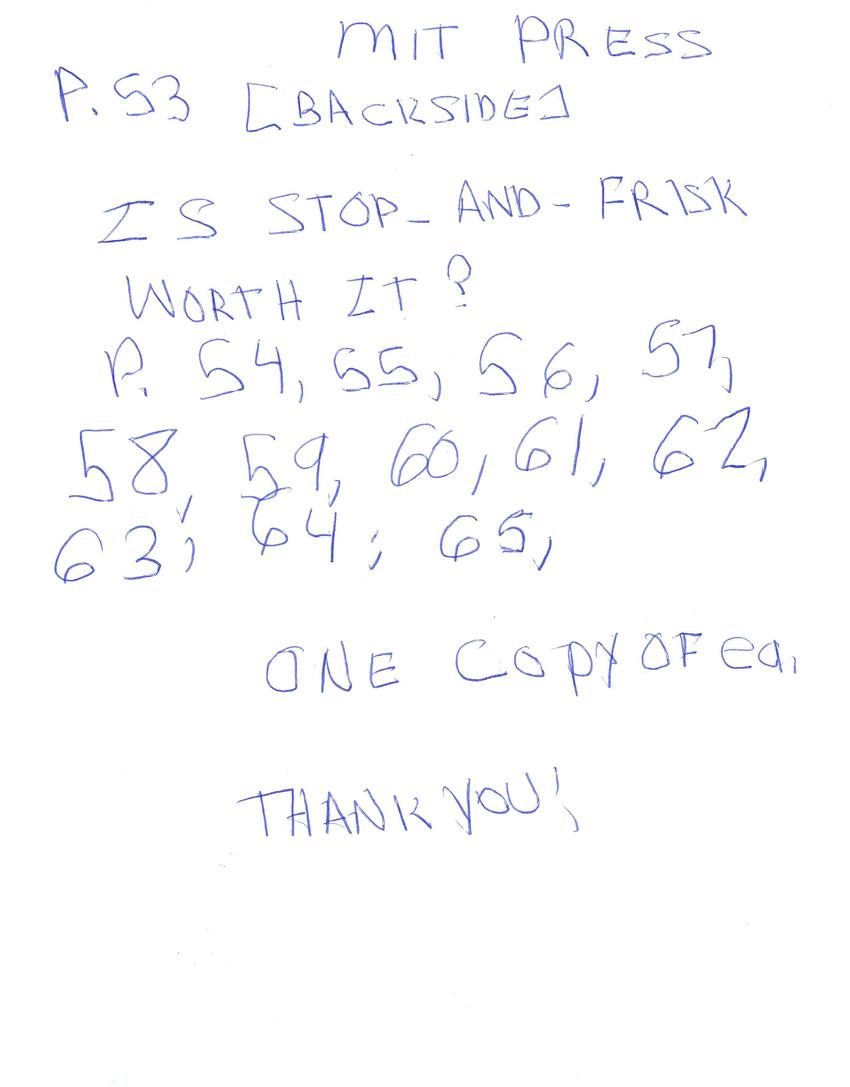 MIT PRESS
P. 53 [BACKSIDE]
IS STOP-AND-FRISK
WORTH IT?
P. 54, 55, 56, 57,
58, 59, 60, 61, 62,
63, 64, 65,
ONE COPY OF ea.
THANK YOU!